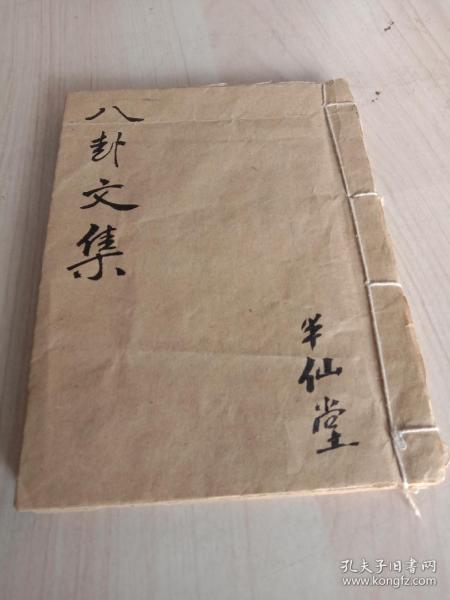 八卦文集
半仙堂
孔夫子旧书网
www.kongfz.com